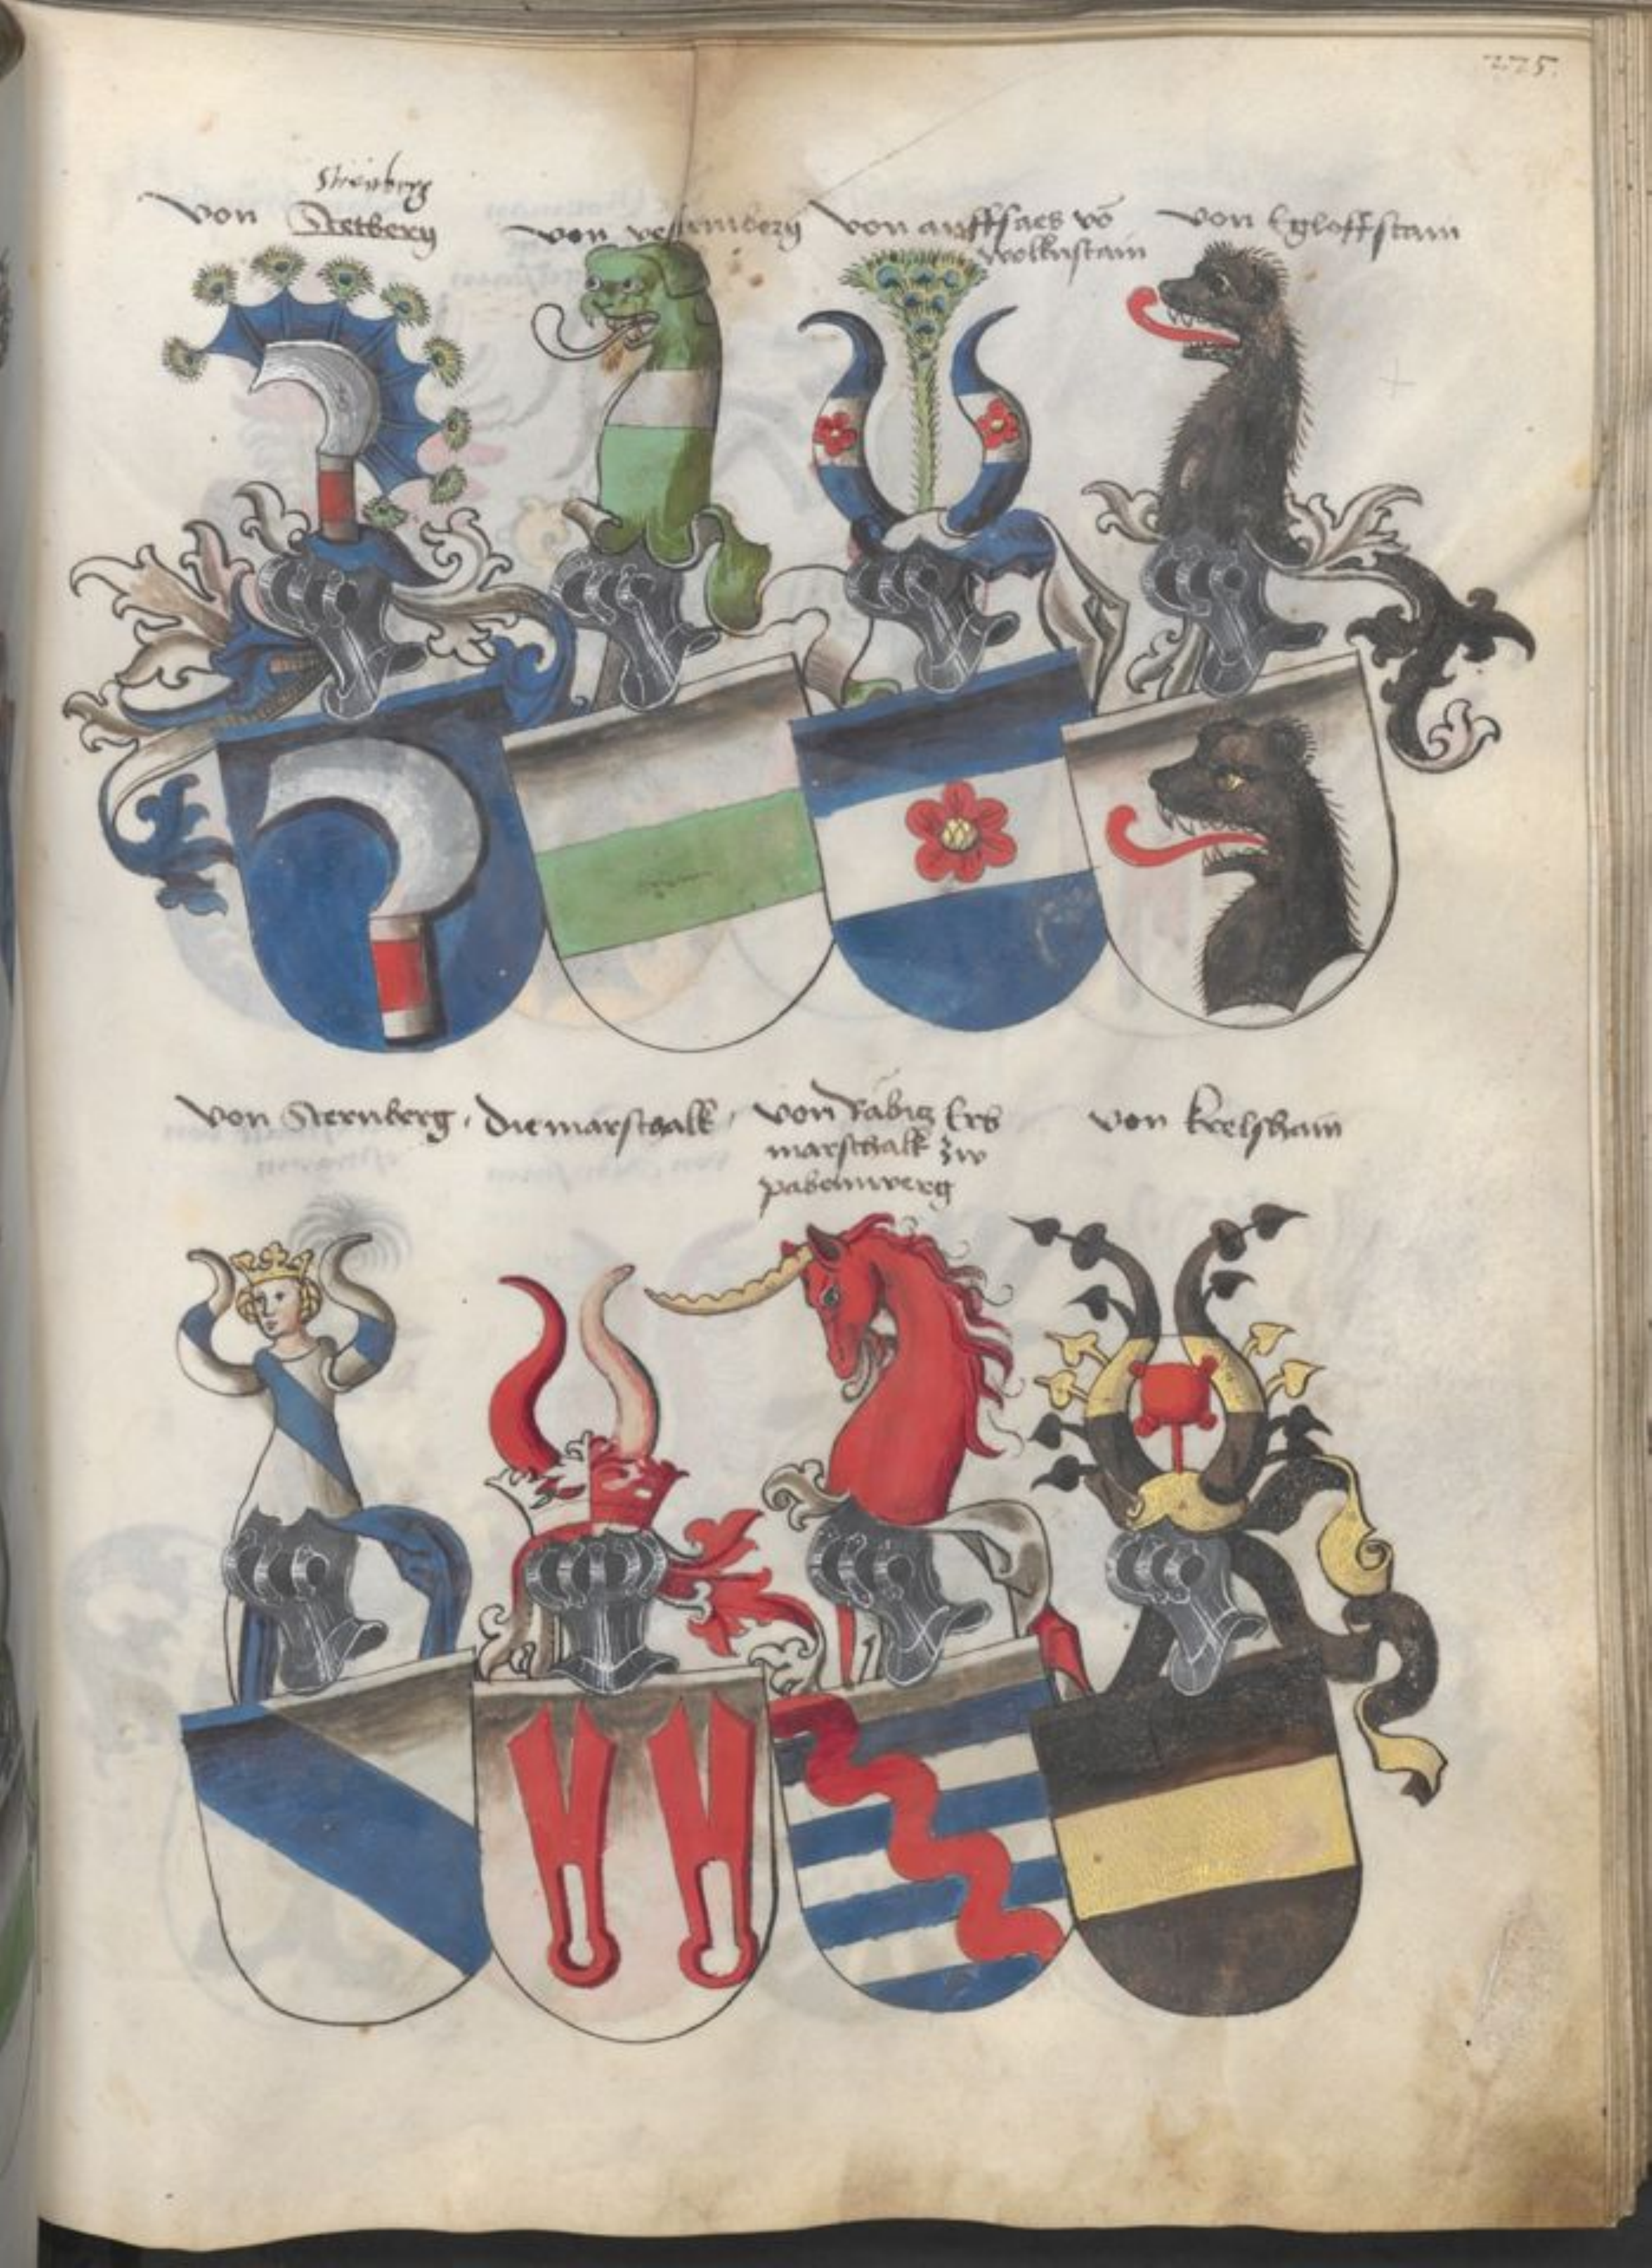 225.
Steinberg
von Stetberg
von vestenberg
von auffsaes võ
wolknstain
von Egloffstain
von Sternberg.
Die marschalk
von Rabig Erb
marschalk zw
pabenwerg
von krelshaim